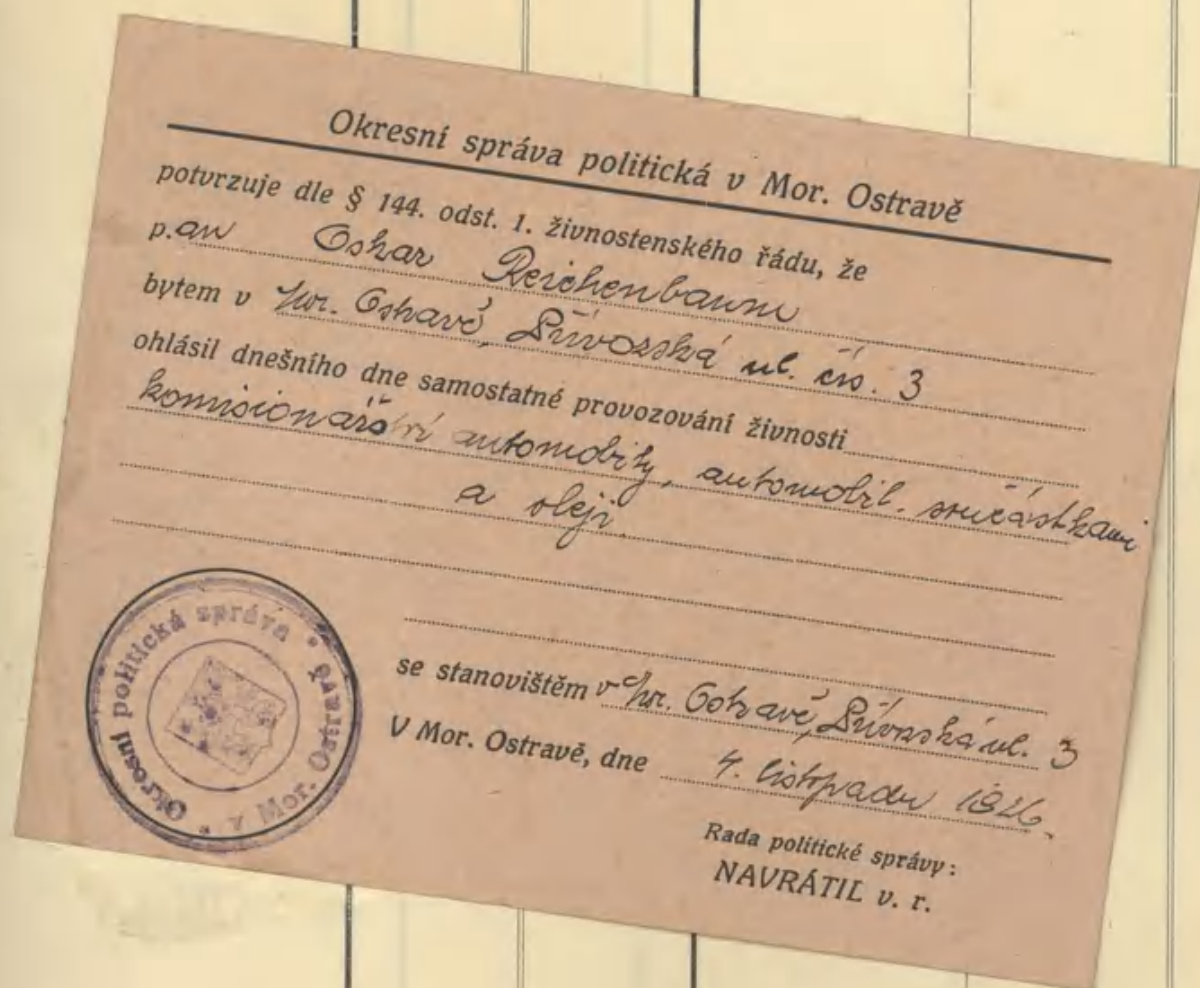 Okresní správa politická v Mor. Ostravě
potvrzuje dle § 144. odst. 1. živnostenského řádu, že
p.an Oskar Reichenbaum
bytem v Mor. Ostravě, Přívozská ul. čís. 3
ohlásil dnešního dne samostatné provozování živnosti
komisionářství automobily, automobil. součástkami
a oleji.
se stanovištěm v Mor. Ostravě, Přívozská ul. 3
V Mor. Ostravě, dne 4. listopadu 1926.
Rada politické správy:
NAVRÁTIL v. r.
Okresní politická správa * v Mor. Ostravě *